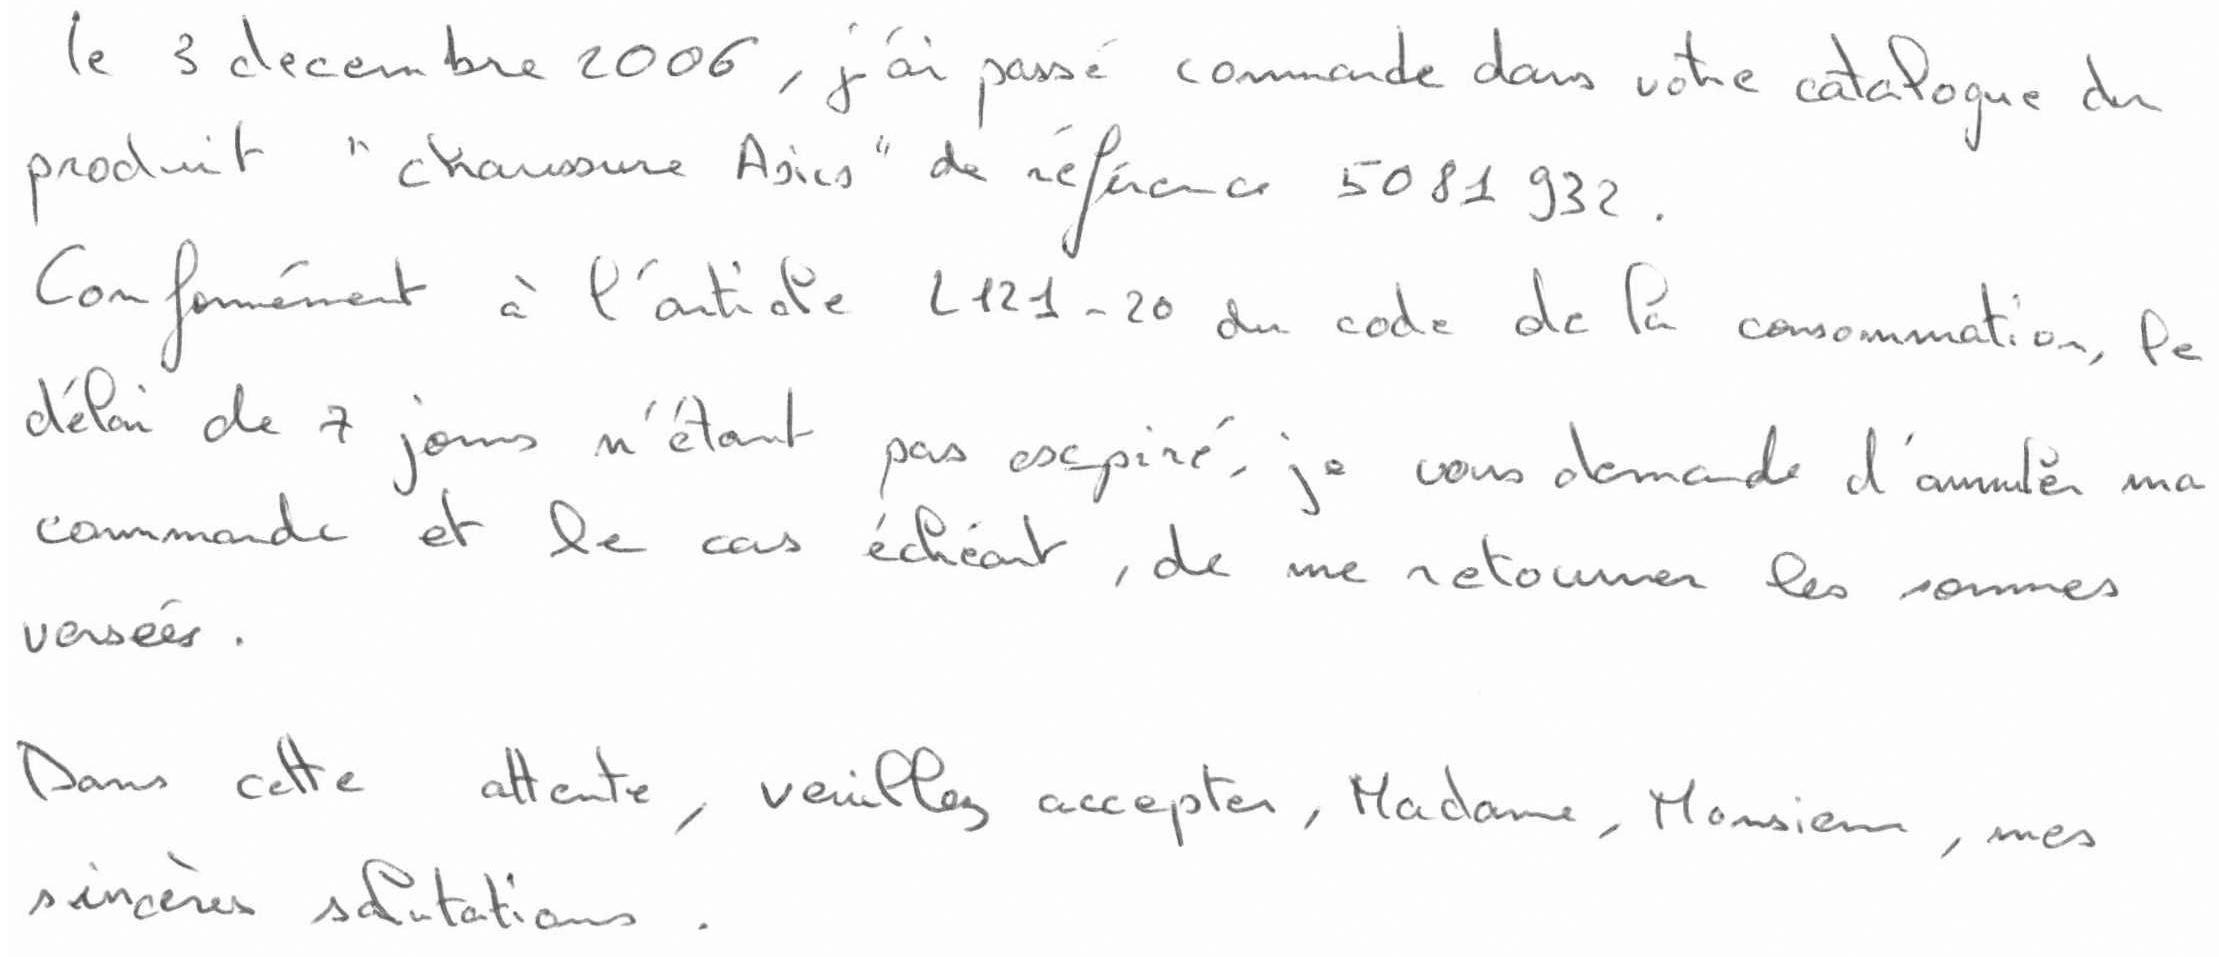 le 3 decembre 2006, j'ai passé commande dans votre catalogue du
produit "chaussure Asics" de référence 5081932.
Conformément à l'article L121-20 du code de la consommation, le
délai de 7 jours n'étant pas expiré, je vous demande d'annuler ma
commande et le cas échéant, de me retourner les sommes
versées.
Dans cette attente, veuillez accepter, Madame, Monsieur, mes
sincères salutations.